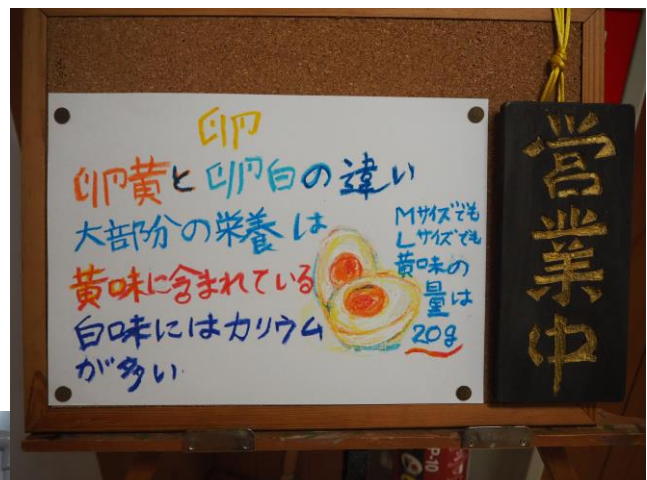 卵
卵黄と卵白の違い
大部分の栄養は
黄味に含まれている
白味にはカリウム
が多い
Mサイズでも
Lサイズでも
黄味の
量は
20g
営業中
P-10